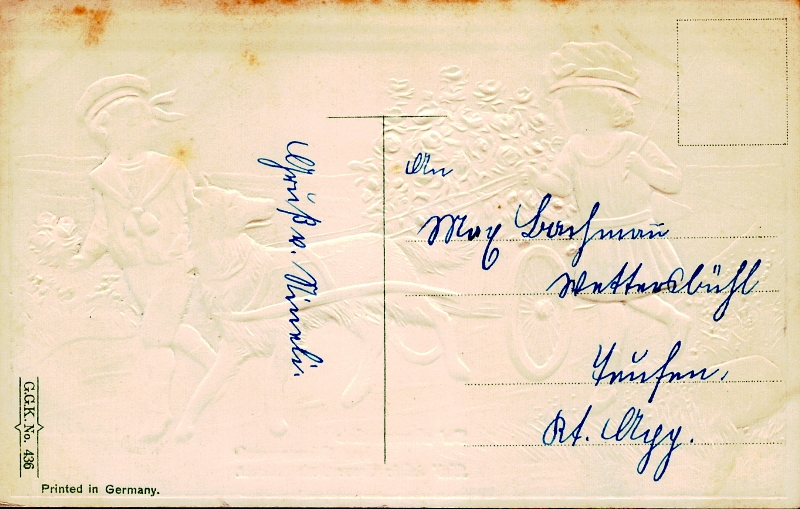 Gruß v.
An
Max Bachmann
Wettersbühl
Teufen,
Kt. App.
G.G.K. No. 436
Printed in Germany.